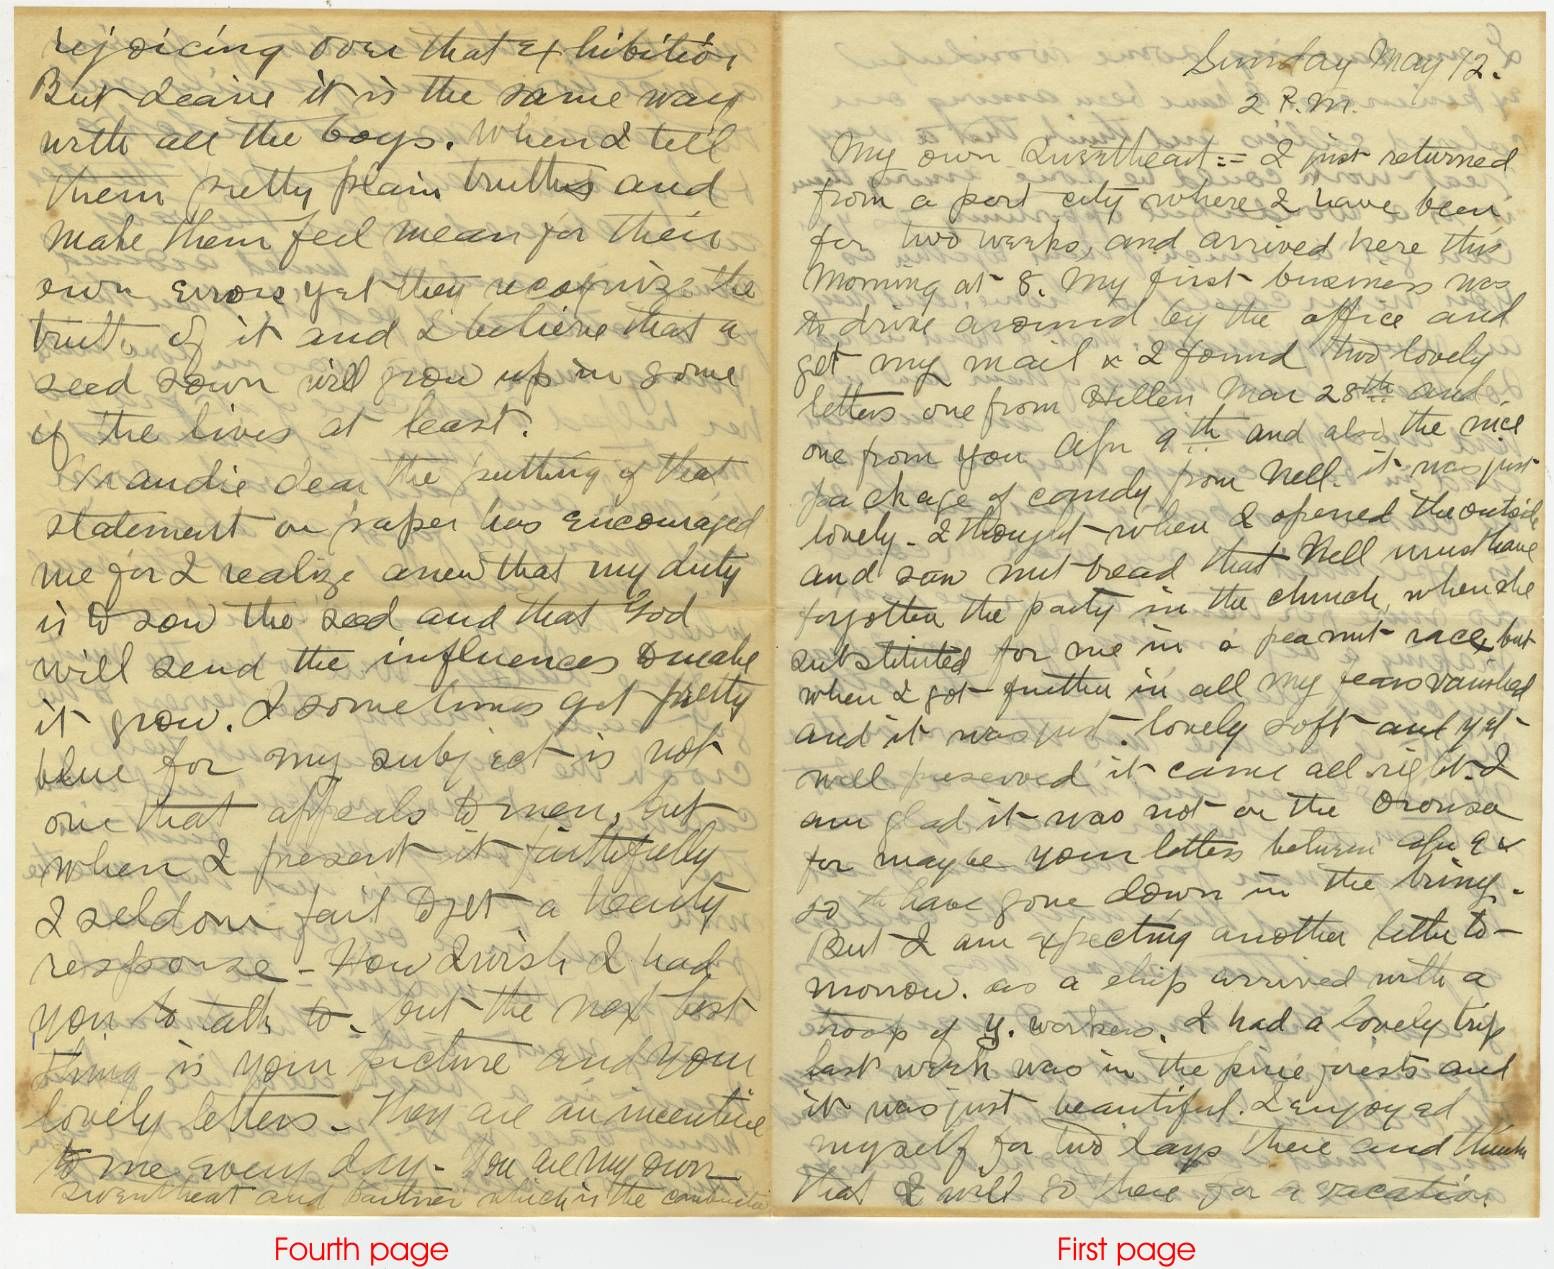 rejoicing over that exhibition
But dearie it is the same way
with all the boys. When I tell
them pretty plain truths and
make them feel mean for their
own errors yet they recognize the
truth of it and I believe that a
seed sown will grow up in some
of the lives at least.
Maudie dear the putting of that
statement on paper has encouraged
me for I realize anew that my duty
is to sow the seed and that God
will send the influences to make
it grow. I sometimes get pretty
blue for my subject is not
one that appeals to men, but
when I present it faithfully
I seldom fail to get a hearty
response - How I wish I had
you to talk to - but the next best
thing is your picture and your
lovely letters - They are an incentive
to me every day - You are my own
sweetheart and partner which is the
Fourth page
Sunday May 12.
2 P.M.
My own Sweetheart:- I just returned
from a port city where I have been
for two weeks, and arrived here this
morning at 8. My first business was
to drive around by the office and
get my mail & I found two lovely
letters one from Hellen Mar 28th and
one from you Apr 9th and also the nice
package of candy from Nell. it was just
lovely - I thought when I opened the outside
and saw nut bread that Nell must have
forgotten the party in the church, when she
substituted for me in a peanut race but
when I got further in all my fears vanished
and it was just lovely soft and yet
well preserved it came all right. I
am glad it was not on the Oronsa
for maybe your letters between Apr 9 &
20 have gone down in the briny.
But I am expecting another letter to-
morrow. as a ship arrived with a
troop of Y. workers. I had a lovely trip
last week was in the pine forests and
it was just beautiful. I enjoyed
myself for two days there and think
that I will go there for a vacation.
First page